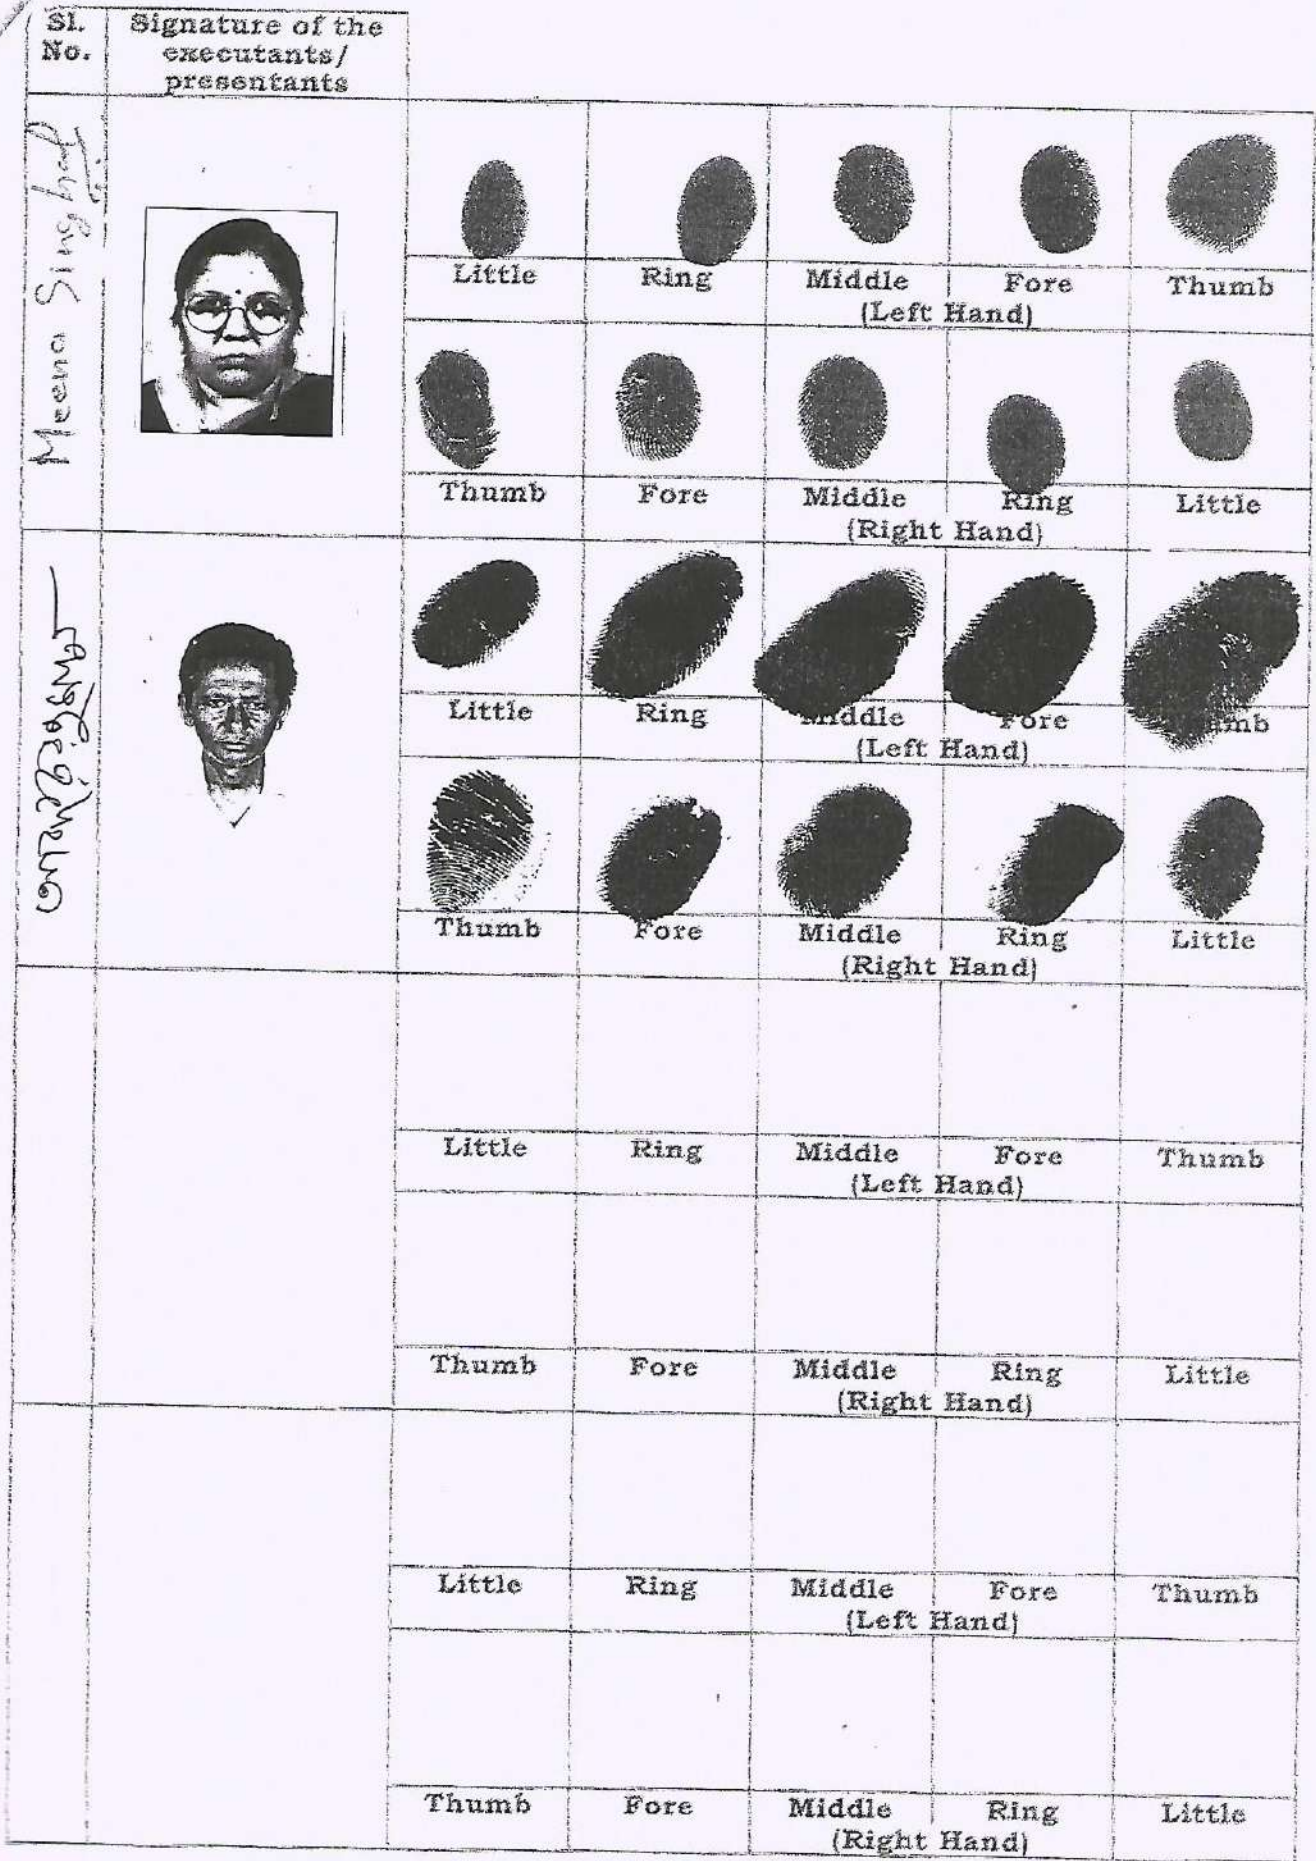 Sl.
No.
Signature of the
executants/
presentants
Meena Singh
Little Ring Middle Fore Thumb
(Left Hand)
Thumb Fore Middle Ring Little
(Right Hand)
Little Ring Middle Fore Thumb
(Left Hand)
Thumb Fore Middle Ring Little
(Right Hand)
Little Ring Middle Fore Thumb
(Left Hand)
Thumb Fore Middle Ring Little
(Right Hand)
Little Ring Middle Fore Thumb
(Left Hand)
Thumb Fore Middle Ring Little
(Right Hand)